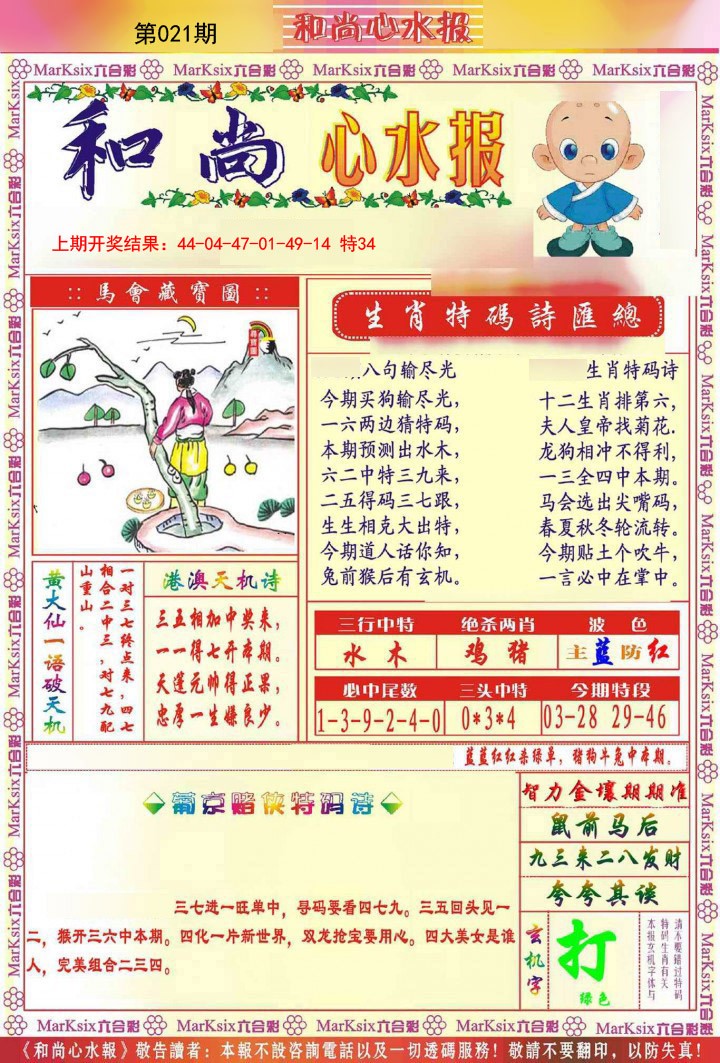 第021期
和尚心水报
MarKsix六合彩 MarKsix六合彩 MarKsix六合彩 MarKsix六合彩 MarKsix六合彩
和尚 心水报
上期开奖结果：44-04-47-01-49-14 特34
:: 馬會藏寶圖 ::
生肖特碼詩匯總
八句输尽光
今期买狗输尽光，
一六两边猜特码，
本期预测出水木，
六二中特三九来，
二五得码三七跟，
生生相克大出特，
今期道人话你知，
兔前猴后有玄机。
生肖特码诗
十二生肖排第六，
夫人皇帝找菊花．
龙狗相冲不得利，
一三全四中本期。
马会选出尖嘴码，
春夏秋冬轮流转。
今期贴士个吹牛，
一言必中在掌中。
黄大仙一语破天机
一对三七终点来，四七
相合二中三，对七九配
山重山。
港澳天机诗
三五相加中奖来，
一一得七开本期。
天蓬元帅得正果，
忠厚一生嫌良少。
三行中特 绝杀两肖 波色
水木 鸡猪 主蓝防红
必中尾数 三头中特 今期特段
1-3-9-2-4-0 0*3*4 03-28 29-46
蓝蓝红红杀绿单，猪狗牛兔中本期。
葡京赌侠特码诗
三七进一旺单中，寻码要看四七九。三五回头见一
二，猴开三六中本期。四化一片新世界，双龙抢宝要用心。四大美女是谁
人，完美组合二三四。
智力金壤期期准
鼠前马后
九三来二八发财
夸夸其谈
玄机字
打
绿色
请不要错过特码
特码生肖有关
本报玄机字体与
MarKsix六合彩 MarKsix六合彩 MarKsix六合彩 MarKsix六合彩 MarKsix六合彩
《和尚心水報》敬告讀者：本報不設咨詢電話以及一切透碼服務！敬請不要翻印，以防失真！